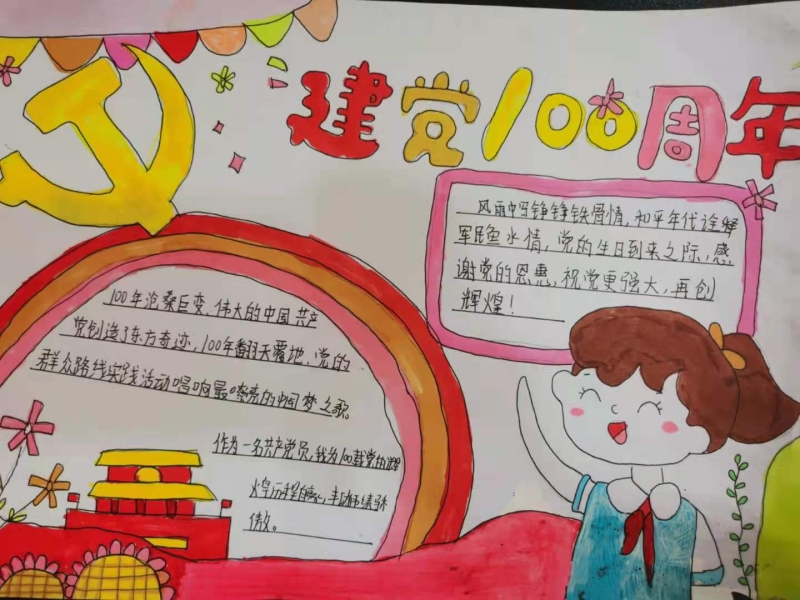 建党100周年
风雨中写铮铮铁骨情，和平年代诠释
军民鱼水情，党的生日到来之际，感
谢党的恩惠，祝党更强大，再创
辉煌！
100年沧桑巨变，伟大的中国共产
党创造了东方奇迹，100年翻天覆地，党的
群众路线实践活动唱响最嘹亮的中国梦之歌。
作为一名共产党员，我为100载党的辉
煌历程自豪
傲。